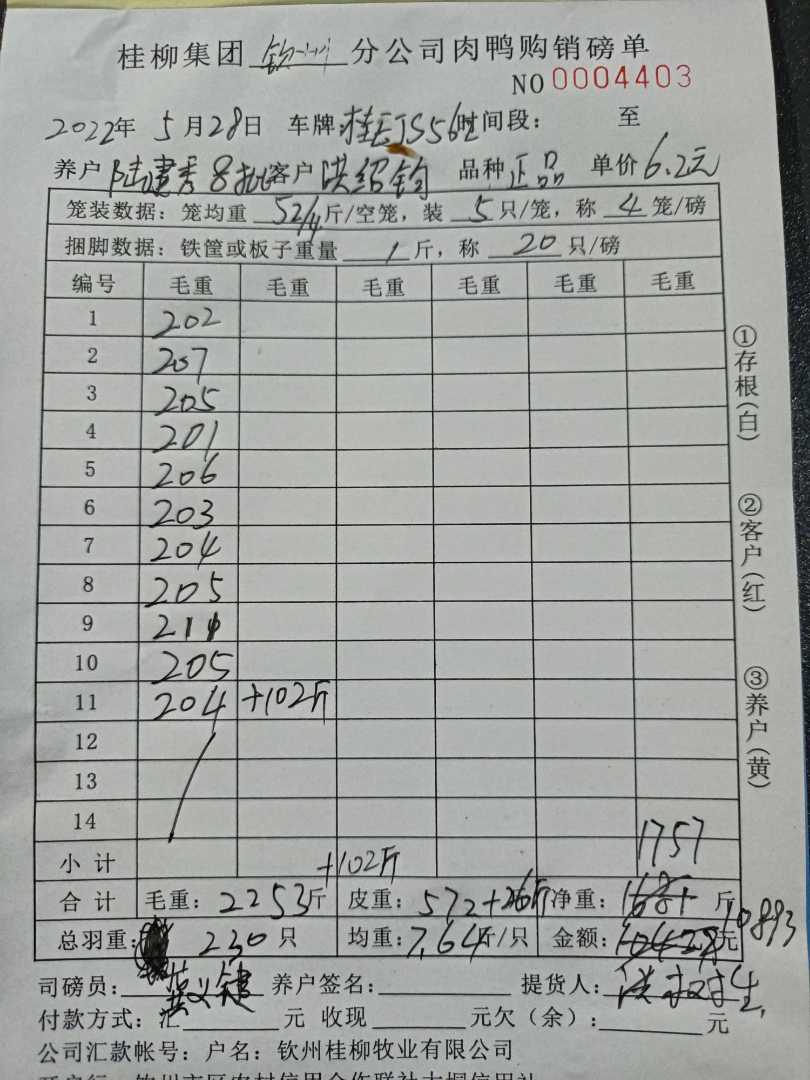 桂柳集团 钦州 分公司肉鸭购销磅单
NO 0004403
2022年 5月28日 车牌:桂EJS56 时间段: 至
养户 陆建秀 8批 客户 洪绍钧 品种 正品 单价 6.2元
笼装数据:笼均重 52/4 斤/空笼,装 5 只/笼,称 4 笼/磅
捆脚数据:铁筐或板子重量 1 斤,称 20 只/磅
编号 毛重 毛重 毛重 毛重 毛重 毛重
1 202
2 207
3 205
4 201
5 206
6 203
7 204
8 205
9 211
10 205
11 204 +102斤
12
13
14
小计 +102斤 1757
合计 毛重:2253斤 皮重:572+26斤 净重: 斤
总羽重: 230 只 均重:7.64斤/只 金额: 元 10893
司磅员: 养户签名: 提货人:
付款方式:汇 元 收现 元欠(余): 元
公司汇款帐号:户名:钦州桂柳牧业有限公司
①存根(白)
②客户(红)
③养户(黄)